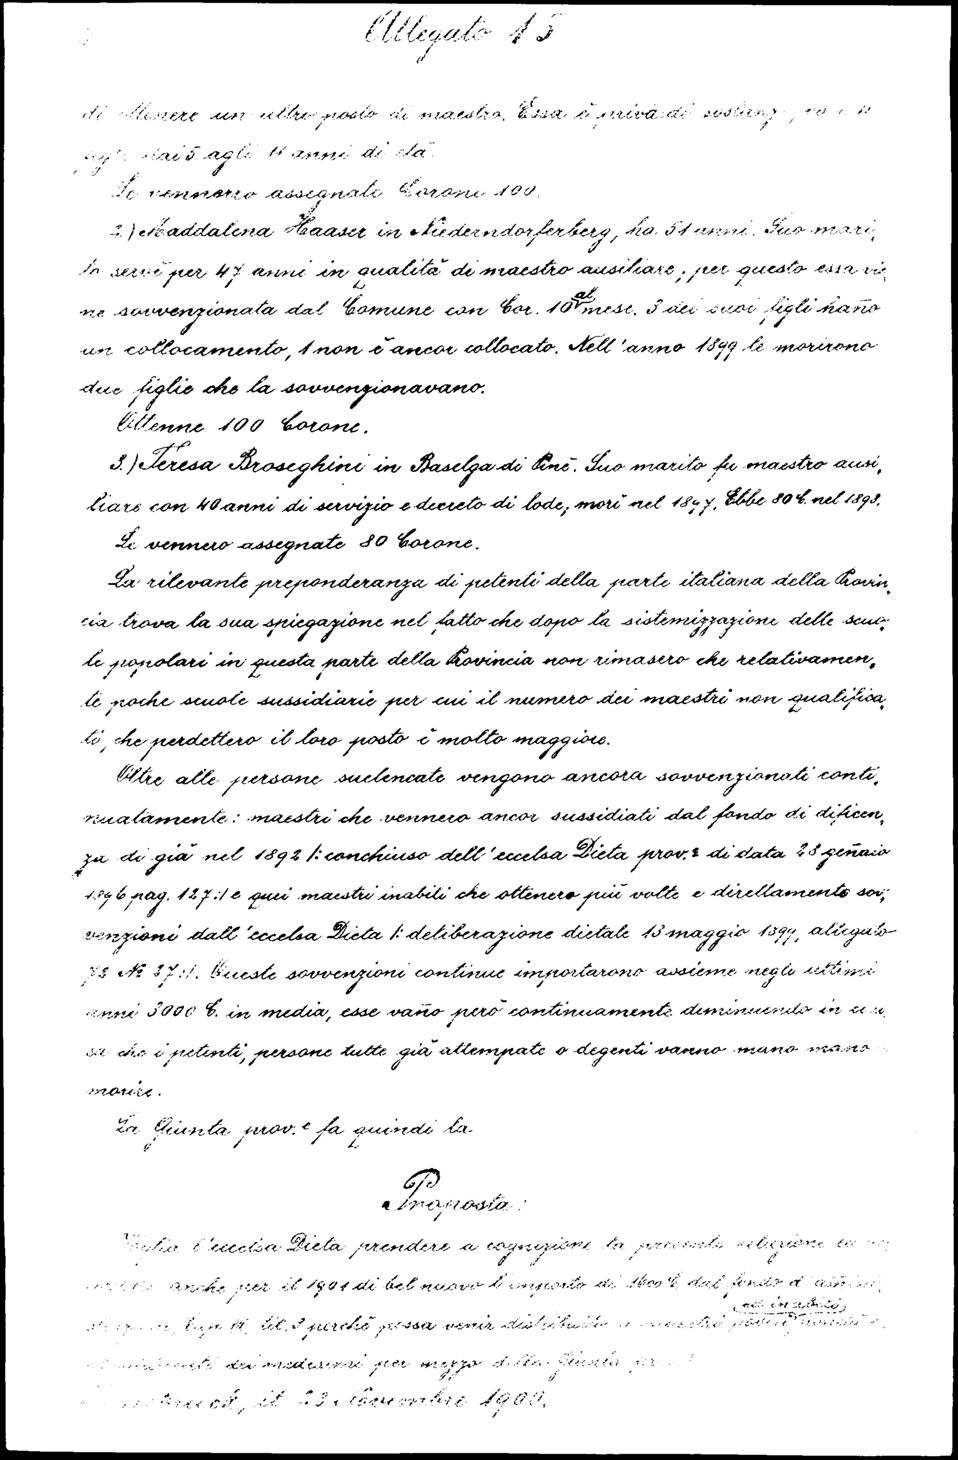 Allegato 15
un altro posto di maestro. Essa è priva di
dai 5 agli 11 anni di età.
Le vennero assegnate Corone 100.
2.) Maddalena Haaser in Niederndorferberg, ha 51 anni. Suo mari„
to servì per 47 anni in qualità di maestro ausiliare; per questo essa vie„
ne sovvenzionata dal Comune con Cor. 10 al mese. 3 dei suoi figli han̄o
un collocamento, 1 non è ancor collocato. Nell'anno 1899 le morirono
due figlie che la sovvenzionavano.
Ottenne 100 Corone.
3.) Teresa Broseghini in Baselga di Pinè. Suo marito fu maestro ausi„
liare con 40 anni di servizio e decreto di lode, morì nel 1897. Ebbe 80 C. nel 1898.
Le vennero assegnate 80 Corone.
La rilevante preponderanza di petenti della parte italiana della Provin„
cia trova la sua spiegazione nel fatto che dopo la sistemizzazione delle scuo„
le popolari in questa parte della Provincia non rimasero che relativamen„
te poche scuole sussidiarie per cui il numero dei maestri non qualifica„
ti, che perdettero il loro posto è molto maggiore.
Oltre alle persone suelencate vengono ancora sovvenzionati conti„
nuatamente: maestri che vennero ancor sussidiati dal fondo di dificen„
za di già nel 1892 /: conchiuso dell'eccelsa Dieta prov.e di data 28 gen̄aio
1896 pag. 127 :/ e quei maestri inabili che ottenero più volte e direttamente sov„
venzioni dall'eccelsa Dieta /: deliberazione dietale 13 maggio 1899, allegato
72 No 37 :/. Queste sovvenzioni continue importarono assieme negli ultimi
anni 3000 C. in media, esse van̄o però continuamente deminuendo in cau„
sa che i petenti, persone tutte già attempate o degenti vanno mano mano
morire.
La Giunta prov.e fa quindi la
Proposta:
Voglia l'eccelsa Dieta prendere a cognizione la presente relazione
anche per il 1901 di bel nuovo l'importo di 1600 C. dal fondo
ed inabili
lit. perchè possa venir distribuito a maestri poveri nonchè
dei medesimi per mezzo della Giunta
il 23 Novembre 1900.